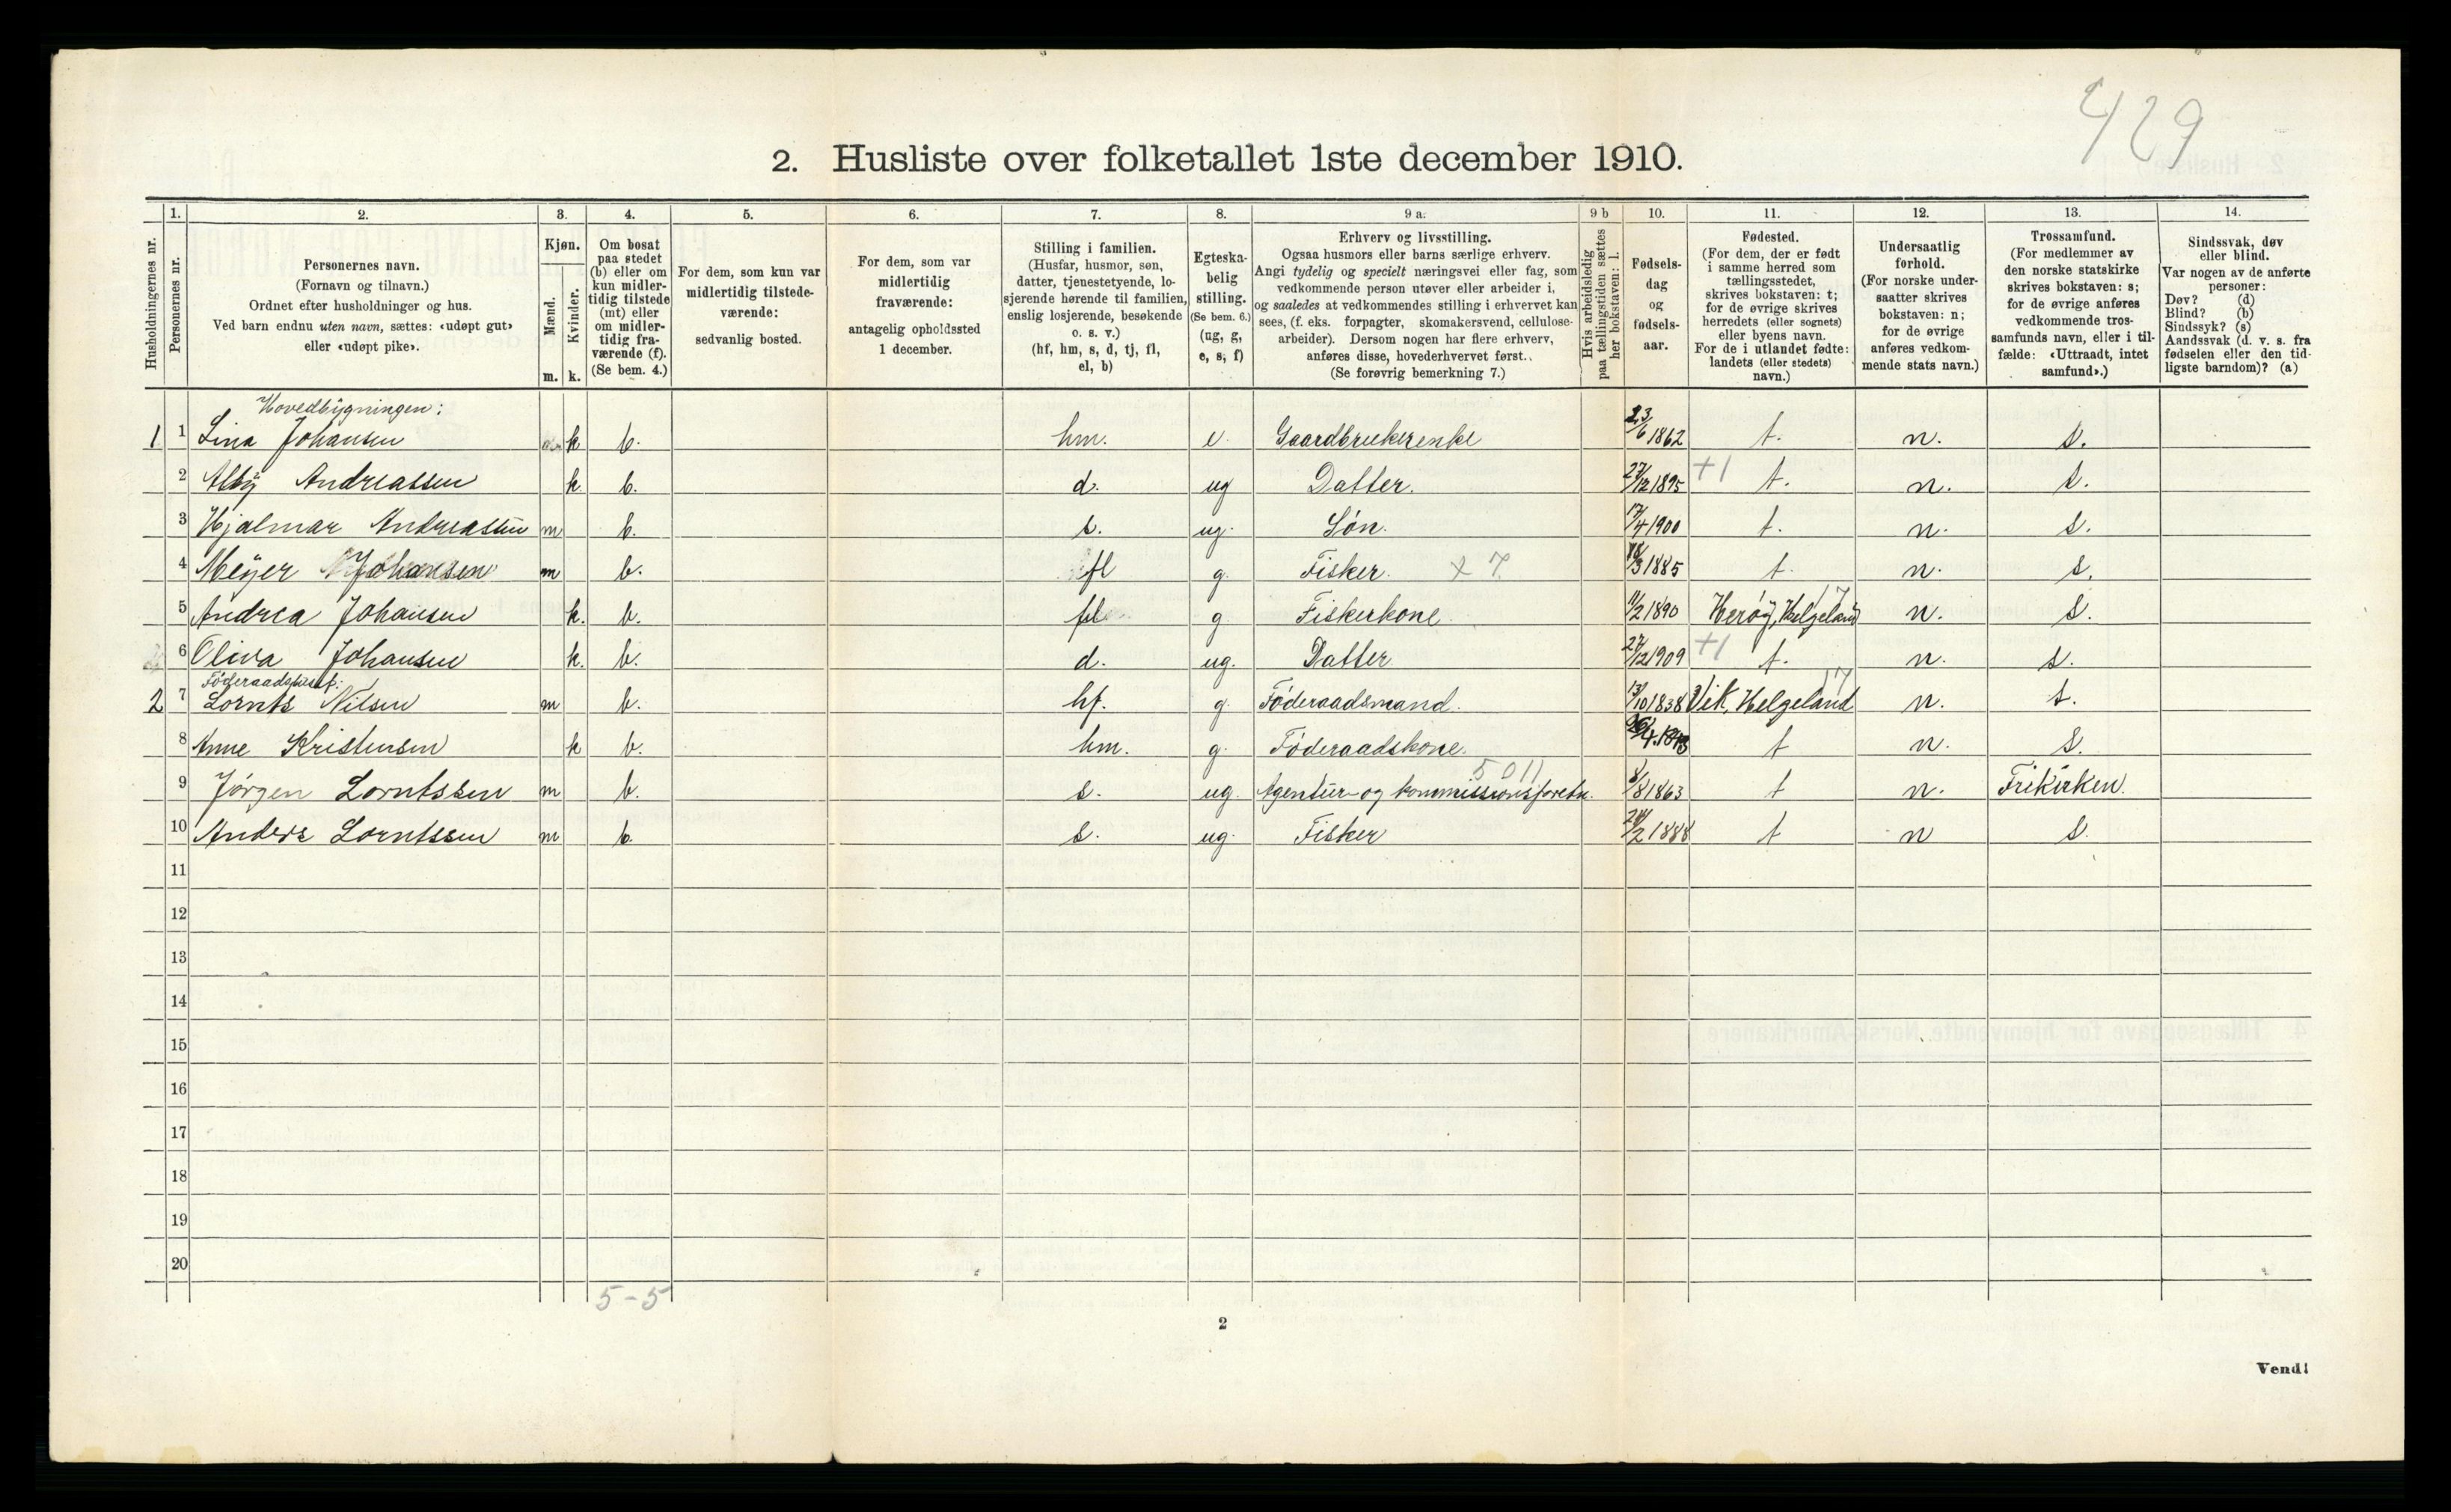 429
2. Husliste over folketallet 1ste december 1910.
Husholdningernes nr.
1.
Personernes nr.
2.
Personernes navn.
(Fornavn og tilnavn.)
Ordnet efter husholdninger og hus.
Ved barn endnu uten navn, sættes: «udøpt gut»
eller «udøpt pike».
3.
Kjøn.
Mænd.
Kvinder.
m. k.
4.
Om bosat
paa stedet
(b) eller om
kun midler-
tidig tilstede
(mt) eller
om midler-
tidig fra-
værende (f).
(Se bem. 4.)
5.
For dem, som kun var
midlertidig tilstede-
værende:
sedvanlig bosted.
6.
For dem, som var
midlertidig
fraværende:
antagelig opholdssted
1 december.
7.
Stilling i familien.
(Husfar, husmor, søn,
datter, tjenestetyende, lo-
sjerende hørende til familien,
enslig losjerende, besøkende
o. s. v.)
(hf, hm, s, d, tj, fl,
el, b)
8.
Egteska-
belig
stilling.
(Se bem. 6.)
(ug, g,
e, s, f)
9 a.
Erhverv og livsstilling.
Ogsaa husmors eller barns særlige erhverv.
Angi tydelig og specielt næringsvei eller fag, som
vedkommende person utøver eller arbeider i,
og saaledes at vedkommendes stilling i erhvervet kan
sees, (f. eks. forpagter, skomakersvend, cellulose-
arbeider). Dersom nogen har flere erhverv,
anføres disse, hovederhvervet først.
(Se forøvrig bemerkning 7.)
9 b
Hvis arbeidsledig
paa tællingstiden sættes
her bokstaven: l.
10.
Fødsels-
dag
og
fødsels-
aar.
11.
Fødested.
(For dem, der er født
i samme herred som
tællingsstedet,
skrives bokstaven: t;
for de øvrige skrives
herredets (eller sognets)
eller byens navn.
For de i utlandet fødte:
landets (eller stedets)
navn.)
12.
Undersaatlig
forhold.
(For norske under-
saatter skrives
bokstaven: n;
for de øvrige
anføres vedkom-
mende stats navn.)
13.
Trossamfund.
(For medlemmer av
den norske statskirke
skrives bokstaven: s;
for de øvrige anføres
vedkommende tros-
samfunds navn, eller i til-
fælde: «Uttraadt, intet
samfund».)
14.
Sindssvak, døv
eller blind.
Var nogen av de anførte
personer:
Døv? (d)
Blind? (b)
Sindssyk? (s)
Aandssvak (d. v. s. fra
fødselen eller den tid-
ligste barndom)? (a)
Hovedbygningen:
1 1 Lina Johansen k b. hm. e. Gaardbrukerenke 23/6 1862 t. n. s.
2 Andreassen k. b. d. ug Datter. 27/12 1895 +1 t. n. s.
3 Hjalmar Andreassen m b. s. ug. Søn. 17/4 1900 t. n. s.
4 Meyer Johansen m b. fl g. Fisker. x 7. 18/3 1885 t. n. s.
5 Andrea Johansen k. b. fl g. Fiskerkone 11/2 1890 Herøy, Helgeland 17 n. s.
6 Oliva Johansen k. b. d. ug. Datter 27/12 1909 +1 t. n. s.
Föderaadshuset:
2 7 Lornts Nilsen m b. hf. g. Föderaadsmand. 13/10 1838 Vik, Helgeland 17 n. s.
8 Anne Kristensen k b. hm. g. Föderaadskone. t n. s.
9 Jörgen Lorntssen m b. s. ug. Agentur- og kommissionsforetn. 5011 8/8 1863 t n. Frikirken.
10 Anders Lorntssen m b. s. ug. Fisker 24/2 1888 t n s.
11
12
13
14
15
16
17
18
19
20
5 - 5
2
Vend!